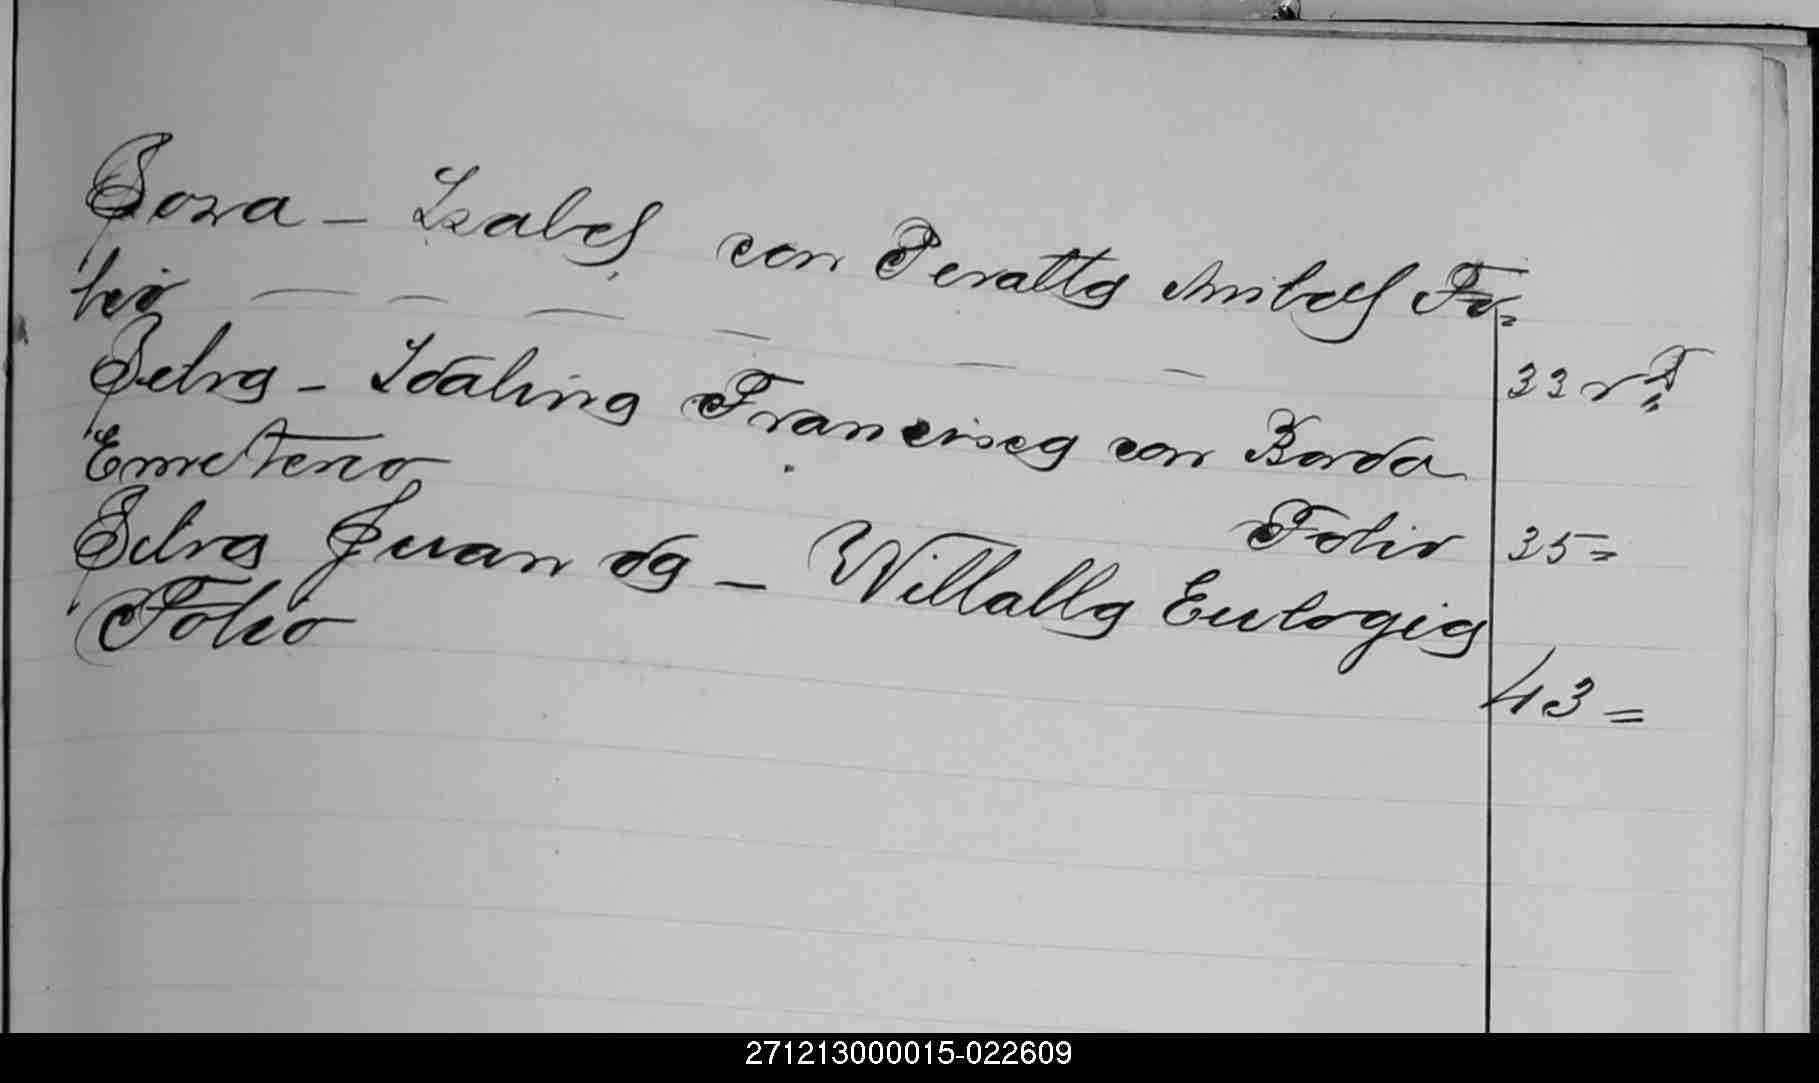 Sosa - Isabel con Peralta Anibal Fo=
lio
33 vta
Selva - Idalina Francisca con Borda
Emeterio
Folio 35=
Selva Juan da - Villalba Eulogia
Folio
43=
271213000015-022609